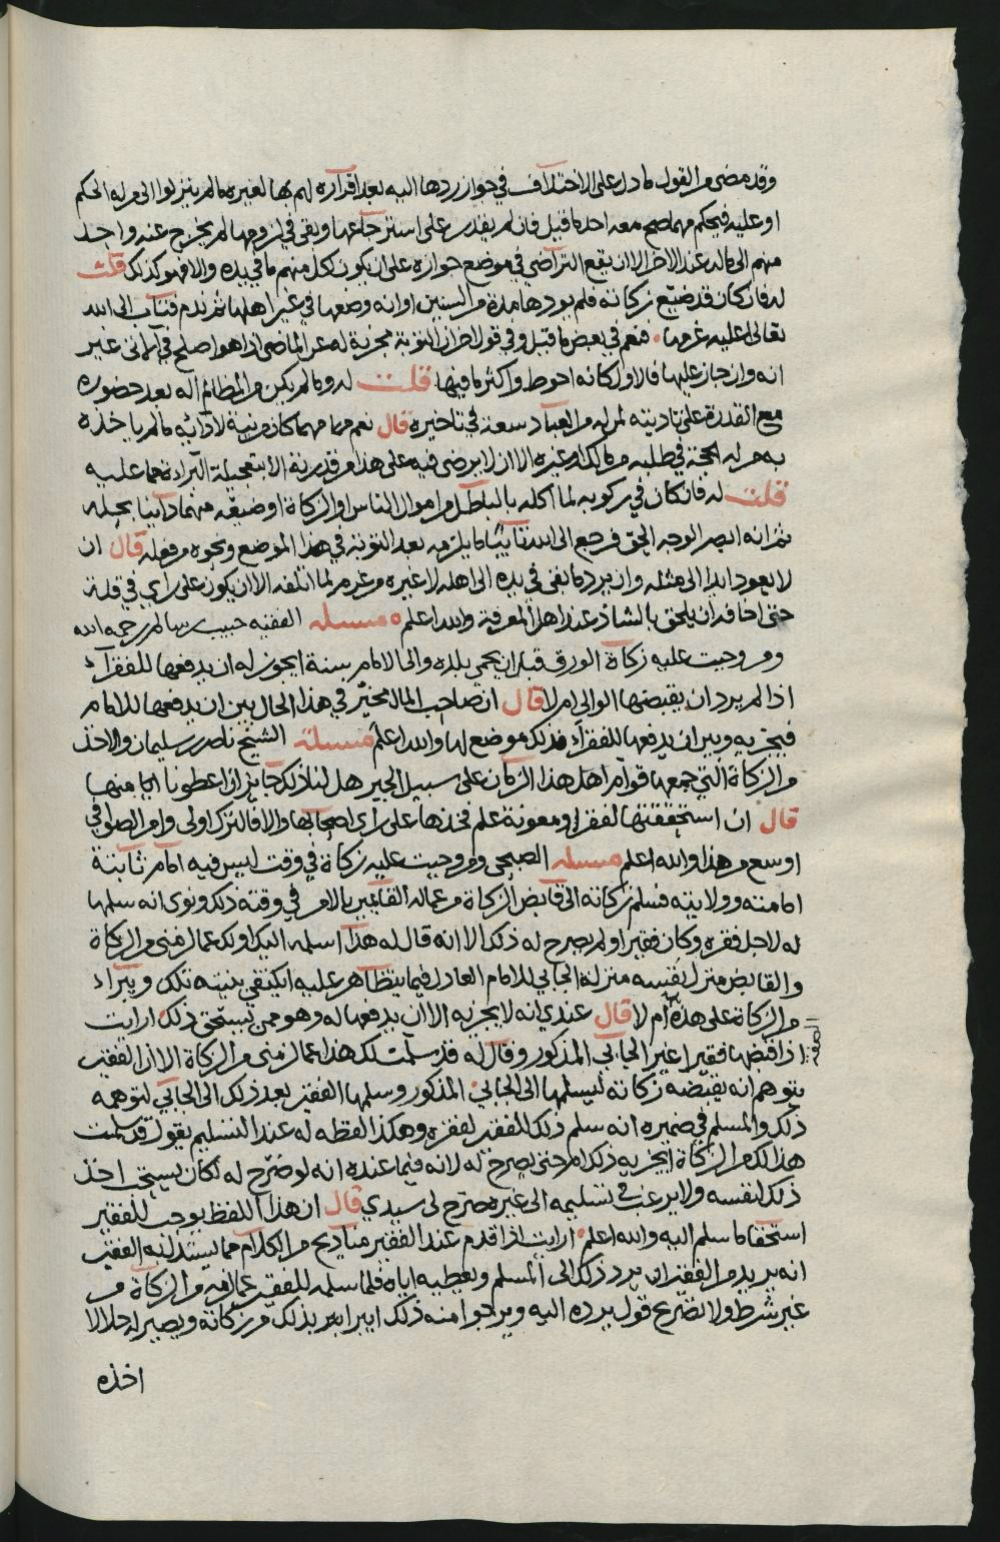 وقد مضى من القول ما دل على الاختلاف في جواز ردها اليه بعد اقراره لهم بها لغيره ما لم ينزلوا الى من له الحكم
او عليه فيحكم مهما صح معه احد ما قيل فان لم يقدر على استرجاعها وبقى في لزومها لم يخرج عنه واحد
منهم الى ماله عند الاخر الا ان يقع التراضي في موضع جوازه على ان يكون لكل منهم ما في يده والا فهو كذلك قلت
له فان كان قد ضيّع زكاته فلم يودها مدة من السنين او انه وضعها في غير اهلها ثم ندم فتاب الى الله
تعالى اعليه غرمها فنعم في بعض ما قيل وفي قول اخر ان التوبة مجزية له عن الماضي اذا هو اصلح في الاتى غير
انه وان جاز عليها فالاول كانه احوط واكثر ما فيها قلت له وما لم يكن من المظالم اله بعد حضوره
مع القدرة على تاديته لمن له من العباد سعة في تاخيره قال نعم مهما كان من نية لادائه ما لم ياخذه
به من له الحجة في طلبه من مالك او غيره الا ان لا يرضى فيه على هذا من قدرته الا بتعجيله البرادة مما عليه
قلت له فان كان في ركوبه لما اكله بالباطل من اموال الناس او الزكاة او ضيعه منهما دائنا بحله
ثم انه ابصر الوجه الحق فرجع الى الله تائبا ما يلزمه بعد التوبة في هذا الموضع ونحوه من فعله قال ان
لا يعود ابدا الى مثله وان يرد ما بقى في يده الى اهله لا غيره من غرم لما اتلفه الا ان يكون على راي في قلة
حتى اخاف ان يلحق بالشاذ عند اهل المعرفة والله اعلم مسئله الفقيه حبيب بن سالم رحمه الله
ومن وجبت عليه زكاة الورق قبل ان يحمي بلده والى الامام بسنة ايجوز له ان يدفعها للفقرآء
اذا لم يرد ان يقبضها الوالي ام لا قال ان صاحب المال مخير في هذا الحال بين ان يدفعها للامام
فيجزيه وبين ان يدفعها للفقرآء فذلك موضع لها والله اعلم مسئلة الشيخ ناصر بن سليمان والاخذ
من الزكاة التي جمعها قوام اهل هذا الزمان على سبيل الجبر هل لنا ذلك جائز ان اعطونا اياها منها
قال ان استحققتها لفقر او معونة علم فخذها على راي اصحابها والا فالترك اولى وامر الصلوافي
اوسع من هذا والله اعلم مسئله الصبحي ومن وجبت عليه زكاة في وقت ليس فيه امام ثابتة
امامته وولايته فسلم زكاته الى قابض الزكاة من عماله القائمين بالامر في وقته ذلك ونوى انه سلمها
له لاجل فقره وكان فقيرا ولم يصرح له ذلك الا انه قال له هذا اسلمه اليك او لك عما لزمنى من الزكاة
والقابض منزل نفسه منزلة الجابي للامام العادل فيما يتظاهر عليه ايكتفي بنيته تلك ويبراء
من الزكاة على هذه الصفة ام لا قال عندي انه لا يجزيه الا ان يدفعها له وهو ممن يستحق ذلك ارايت
اذا قبضها فقيرا غير الجابي المذكور وقال له قد سلمت لك هذا عما لزمنى من الزكاة الا ان الفقير
يتوهم انه يقبضه زكاته ليسلمها الى الجابي المذكور وسلمها الفقير بعد ذلك الى الجابي لتوهمه
ذلك والمسلم في ضميره انه سلم ذلك للفقير لفقره وهكذا لفظه له عند التسليم بقوله قد سلمت
هذا لك من الزكاة ايجزيه ذلك ام حتى يصرح له لانه فيما عنده انه لو صرح له لكان يستحب اخذ
ذلك لنفسه ولا يرغب في تسليمه الى غيره صرح لى سيدي قال ان هذا اللفظ يوجب للفقير
استحقاما سلم اليه والله اعلم ارايت اذا قدم عند الفقير مناديح من الكلام مما يستدل به الفقير
انه يريد من الفقير ان يرد ذلك الى المسلم ويعطيه اياه فلما سلمه للفقير عما لزمه من الزكاة من
غير شرط ولا تصريح قول برده اليه ويرجوا منه ذلك ايبرا بذلك من زكاته ويصير له حلالا
اخذه